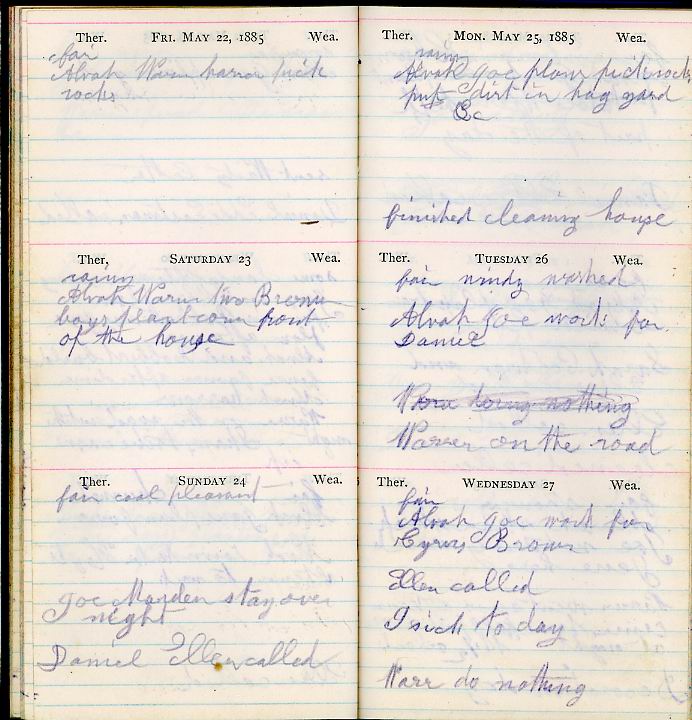 Ther. FRI. MAY 22, 1885 Wea.
fair
Alvah Warren harrow pick
rocks
Ther, SATURDAY 23 Wea.
rainy
Alvah Warren two Brown
boys plant corn front
of the house
Ther. SUNDAY 24 Wea.
fair cool pleasant
Joe Marden stay over
night
Daniel Ellen called
Ther. MON. MAY 25, 1885 Wea.
rainy
Alvah Joe plow pick rocks
put dirt in hog yard
&c
finished cleaning house
Ther. TUESDAY 26 Wea.
fair windy washed
Alvah Joe work for
Daniel
doing nothing
Warren on the road
Ther. WEDNESDAY 27 Wea.
fair
Alvah Joe work for
Cyrus Brown
Ellen called
I sick to day
Warr do nothing